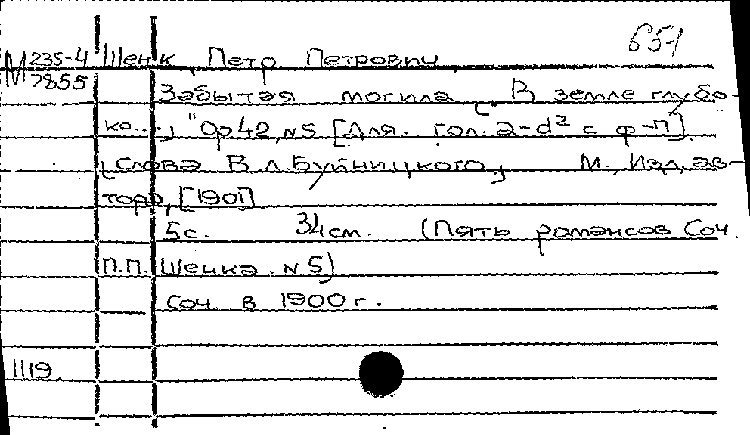 651
М 235-4 Шенк, Петр Петрович
7855
Забытая могила. "В земле глубо-
ко...," Ор 42, N5 [Для. гол. a-d² с ф-п].
[Слова Вл. Буйницкого.] М., Изд. ав-
тора, [1901]
5с. 34 см. (Пять романсов Соч.
П.П. Шенка. N5)
Соч. в 1900 г.
1119